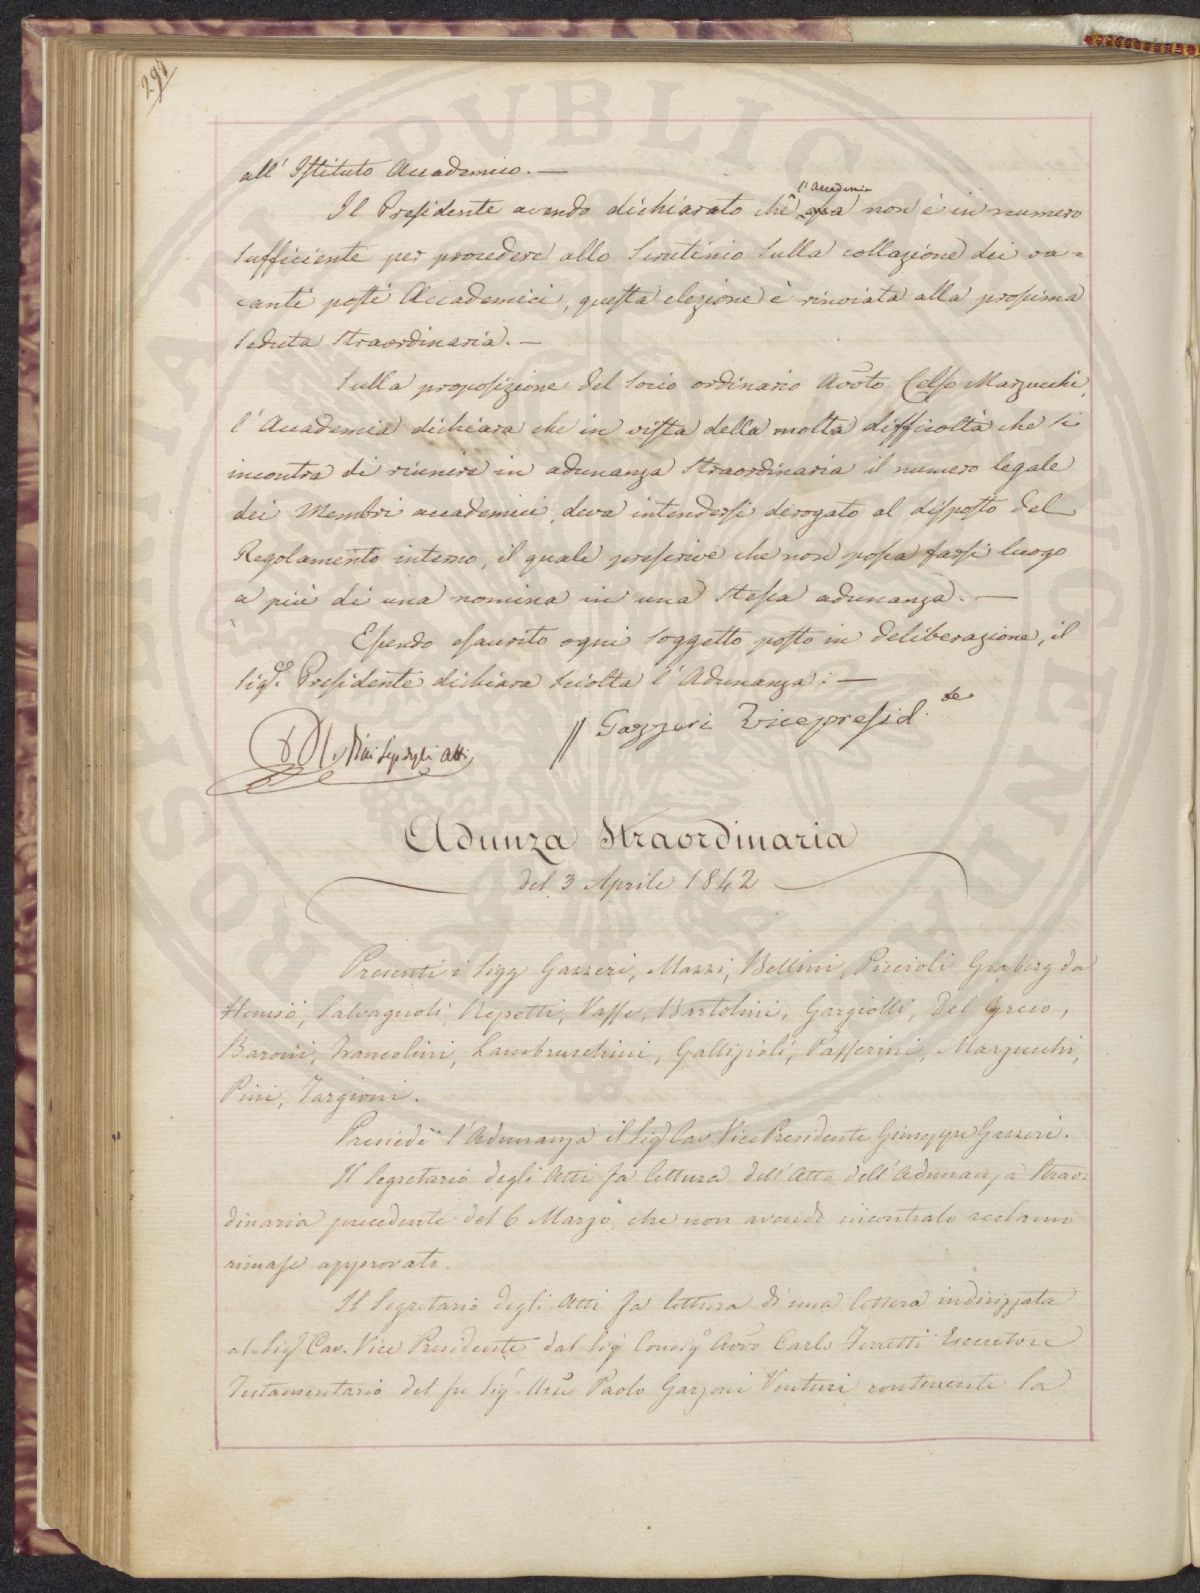 all'Istituto Accademico. —
Il Presidente avendo dichiarato che l'Accademia non è in numero
sufficiente per procedere allo Scrutinio sulla collazione dei va=
canti posti Accademici, questa elezione è rinviata alla prossima
Seduta straordinaria. —
Sulla proposizione del Socio ordinario Avvto. Celso Marzucchi,
l'Accademia dichiara che in vista della molta difficoltà che si
incontra di riunire in adunanza straordinaria il numero legale
dei Membri accademici, deva intendersi derogato al disposto del
Regolamento interno, il quale prescrive che non possa farsi luogo
a più di una nomina in una stessa adunanza. —
Essendo esaurito ogni soggetto posto in deliberazione, il
Sigre. Presidente dichiara sciolta l'Adunanza: —
Gazzeri Vicepresid.te
Segr degli Atti
Adunza Straordinaria
del 3 Aprile 1842
Presenti i Sigg Gazzeri, Mazzi, Bellini, Piccioli Graberg da
Hemsö, Salvagnoli, Repetti, Vasse, Bartolini, Gargiolli, Del Greco,
Baroni, Francolini, Lambruschini, Gallizioli, Passerini, Marzucchi,
Pini, Targioni.
Presiedè l'Adunanza il Sigr Cav Vice Presidente Giuseppe Gazzeri.
Il Segretario degli Atti fa lettura dell'Atto dell'Adunanza Straor
dinaria precedente del 6 Marzo, che non avendo incontrato reclamo
rimase approvato.
Il Segretario degli Atti fa lettura di una lettera indirizzata
al Sigr Cav. Vice Presidente dal Sigr Consigre Avvo Carlo Ferretti Esecutore
Testamentario del fu Sigr. Paolo Garzoni Venturi, contenente la